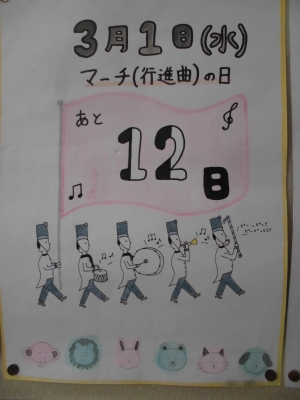 3月1日(水)
マーチ(行進曲)の日
あと
12日